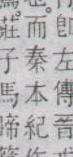 卽左傳晉
而秦本紀
莊子馬蹄